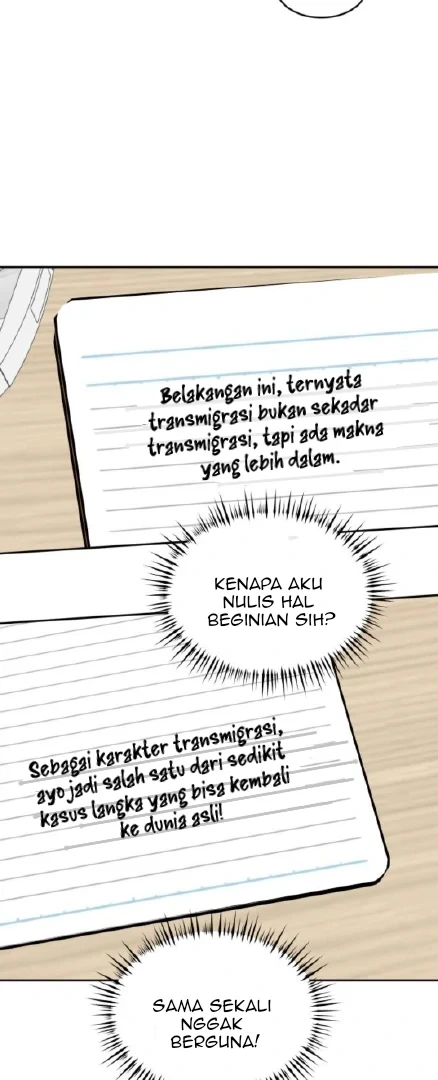 Belakangan ini, ternyata
transmigrasi bukan sekadar
transmigrasi, tapi ada makna
yang lebih dalam.
KENAPA AKU
NULIS HAL
BEGINIAN SIH?
Sebagai karakter transmigrasi,
ayo jadi salah satu dari sedikit
kasus langka yang bisa kembali
ke dunia asli!
SAMA SEKALI
NGGAK
BERGUNA!